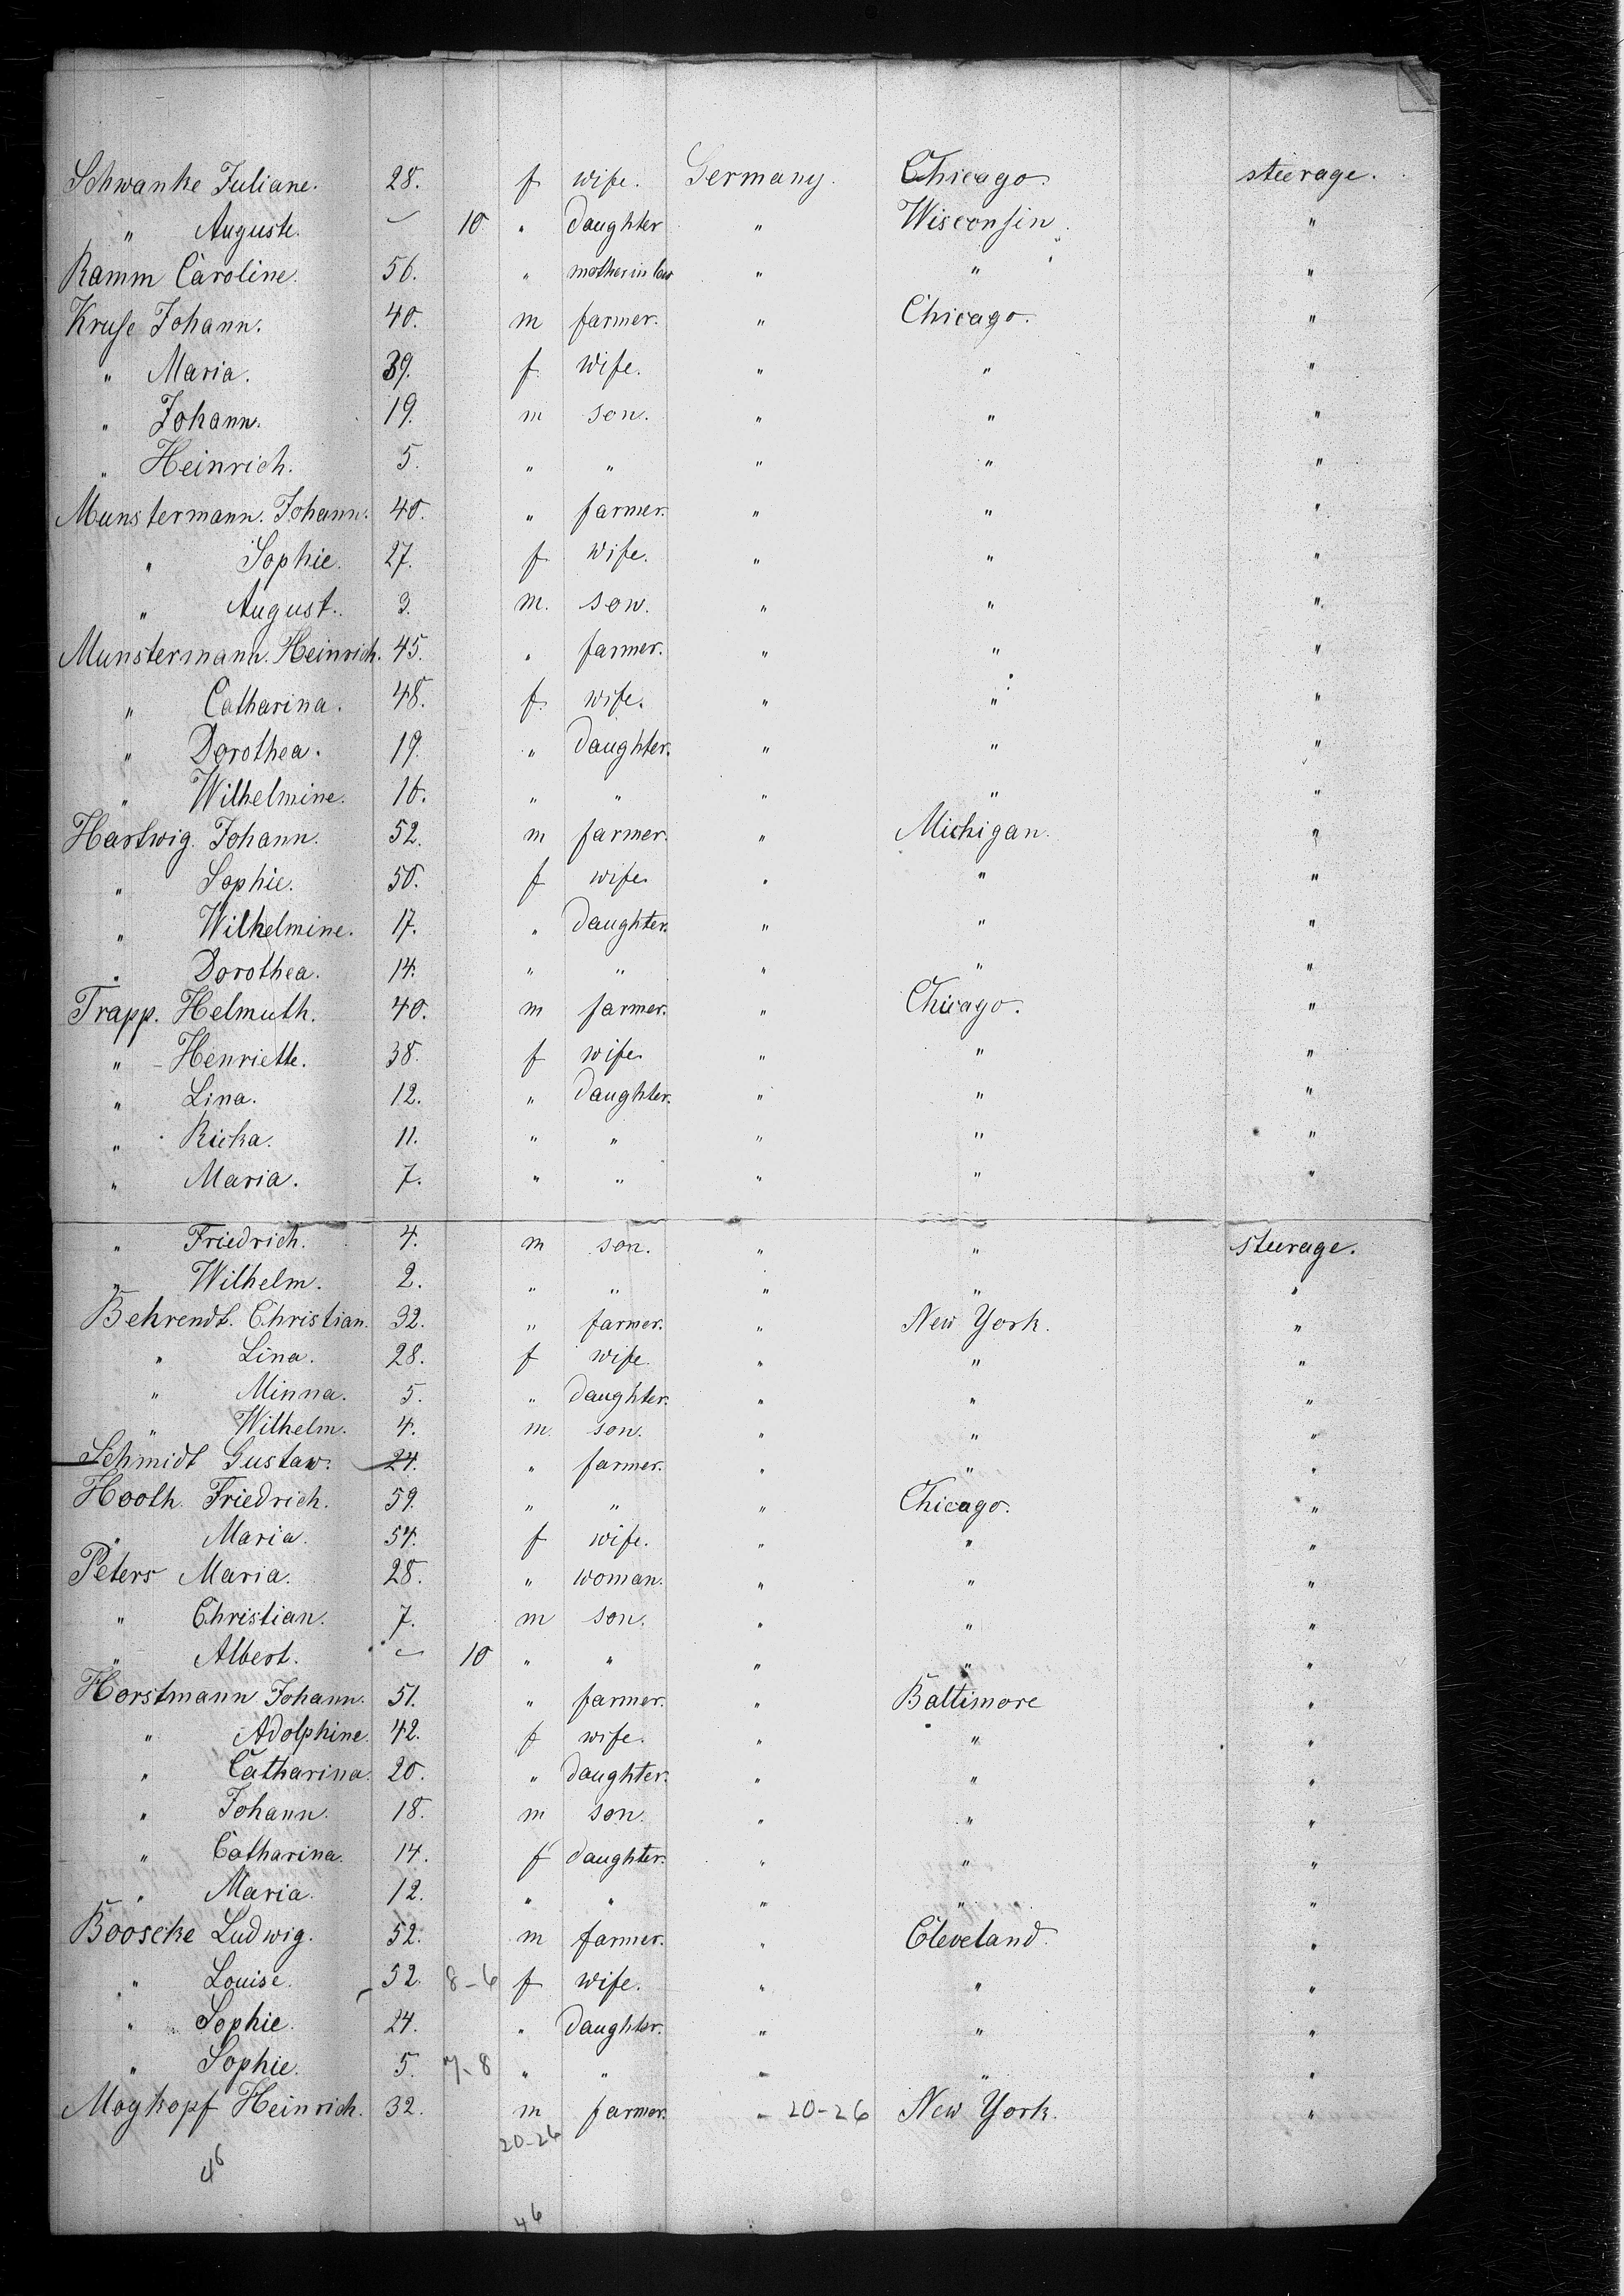 Schwanke Juliane. 28. f wife. Germany. Chicago. steerage.
" Auguste. – 10 " daughter " Wisconsin. "
Ramm Caroline. 56. " mother in law " " "
Kruse Johann. 40. m farmer. " Chicago. "
" Maria. 39. f. wife. " " "
" Johann. 19. m son. " " "
" Heinrich. 5. " " " " "
Munstermann. Johann. 40. " farmer. " " "
" Sophie. 27. f. wife. " " "
" August. 3. m. son. " " "
Munstermann. Heinrich. 45. " farmer. " " "
" Catharina. 48. f. wife. " " "
" Dorothea. 19. " daughter. " " "
" Wilhelmine. 16. " " " " "
Hartwig. Johann. 52. m farmer. " Michigan. "
" Sophie. 50. f wife. " " "
" Wilhelmine. 17. " daughter. " " "
" Dorothea. 14. " " " " "
Trapp. Helmuth. 40. m farmer. " Chicago. "
" Henriette. 38. f wife. " " "
" Lina. 12. " daughter. " " "
" Ricka. 11. " " " " "
" Maria. 7. " " " " "
" Friedrich. 4. m son. " " steerage.
" Wilhelm. 2. " " " " "
Behrendt. Christian. 32. " farmer. " New York. "
" Lina. 28. f wife. " " "
" Minna. 5. " daughter. " " "
" Wilhelm. 4. m. son. " " "
Schmidt Gustav. 24. " farmer. " " "
Hooth. Friedrich. 59. " " " Chicago. "
" Maria. 54. f wife. " " "
Peters Maria. 28. " woman. " " "
" Christian. 7. m son. " " "
" Albert. – 10 " " " " "
Horstmann Johann. 51. " farmer. " Baltimore "
" Adolphine. 42. f wife. " " "
" Catharina. 20. " daughter. " " "
" Johann. 18. m son. " " "
" Catharina. 14. f daughter. " " "
" Maria. 12. " " " " "
Booscke Ludwig. 52. m farmer. " Cleveland. "
" Louise. 52. 8-6 f wife. " " "
" Sophie. 24. " daughter. " " "
" Sophie. 5. 7-8 " " " " "
Moykopf Heinrich. 32. m farmer. " 20-26 New York. "
20-26
46
46